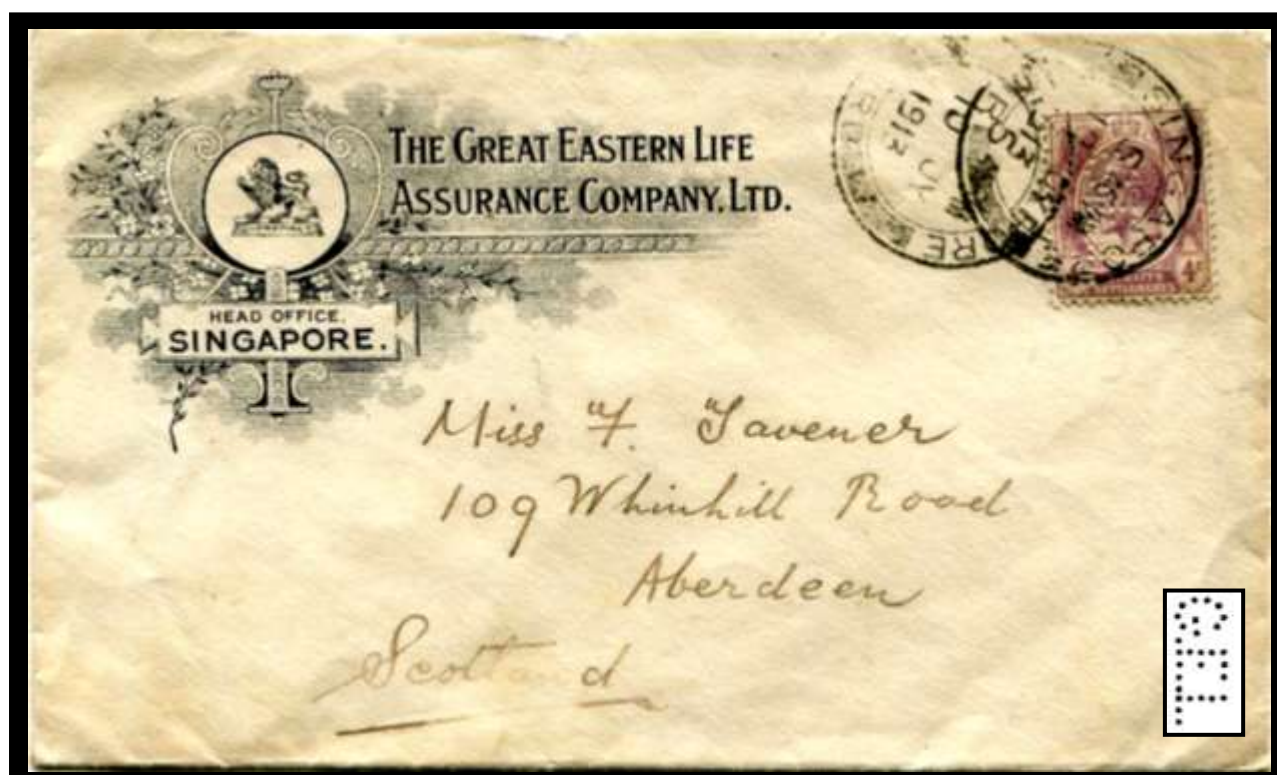 THE GREAT EASTERN LIFE
ASSURANCE COMPANY, LTD.
HEAD OFFICE.
SINGAPORE.
1913
SINGAPORE
4c
Miss F. Tavener
109 Whinhill Road
Aberdeen
Scotland